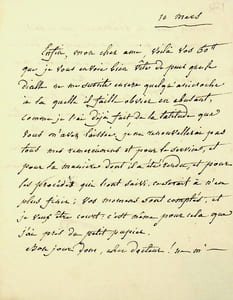 10 mars
Enfin, mon cher ami, voilà vos 60#
que je vous envoie bien vite de peur que le
Diable ne me suscite encore quelque anicroche
à la quelle il faille obvier en abusant,
comme je l'ai déjà fait de la latitude que
vous m'avez laissée, je ne renouvellerai pas
tous mes remerciemens et pour le service, et
pour la manière dont il a été rendu, et pour
les procédés qui l'ont suivi, ce serait à n'en
plus finir; vos momens sont comptés, et
je veux être court; c'est même pour cela que
j'ai pris du petit papier.
Bon jour donc, cher docteur!